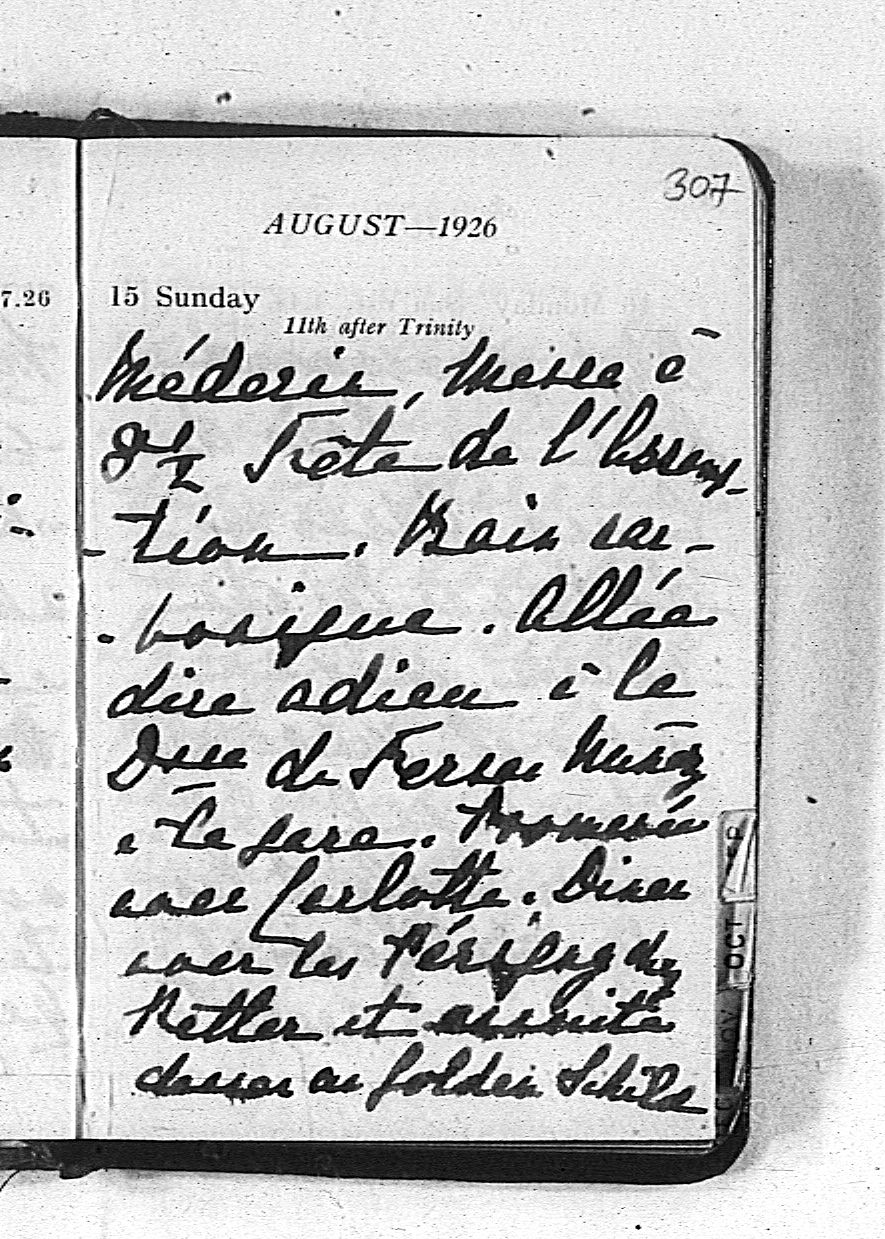 307
AUGUST—1926
7.26
15 Sunday
11th after Trinity
Médecin, Messe à
8 1/2 Fête de l'Assomp-
- tion. Bain car-
- bonique. Allée
dire adieu à la
Dsse de Fernan Nuñez
à la gare. Promenée
avec Carlotte. Diner
avec les chez
Ritter et ensuite
danser au Golden Schild
OCT
NOV